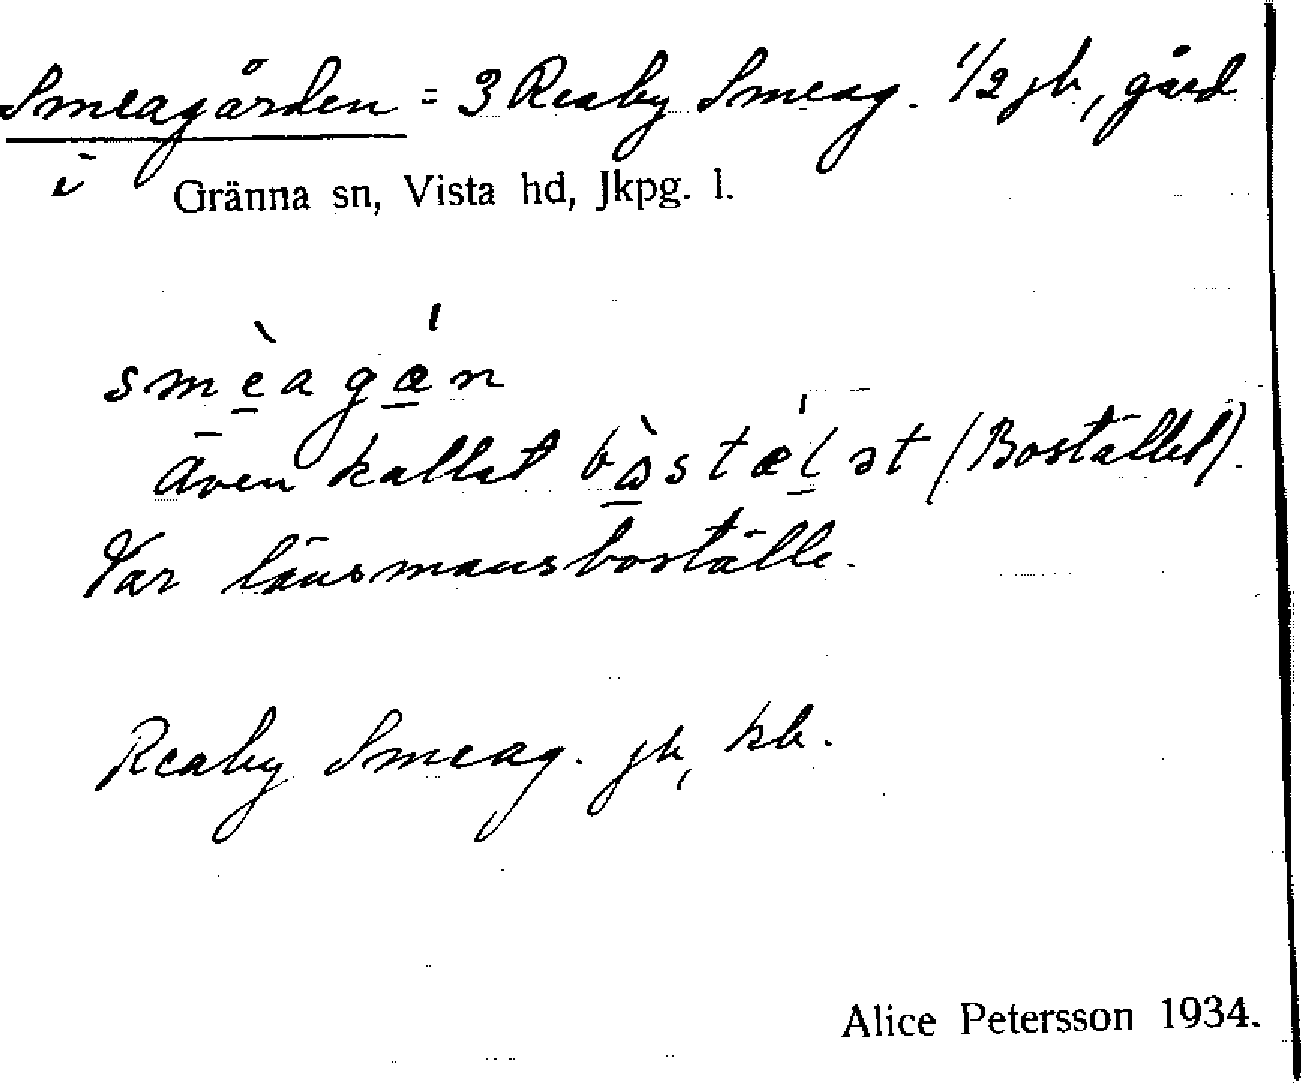 Smeagården = 3 Reaby Smeag. 1/2 jb, gård
i Gränna sn, Vista hd, Jkpg. l.
smèagǽn
Även kallat bòstæ̀lət (Bostället).
Var länsmansboställe.
Reaby Smeag. jb, kb.
Alice Petersson 1934.